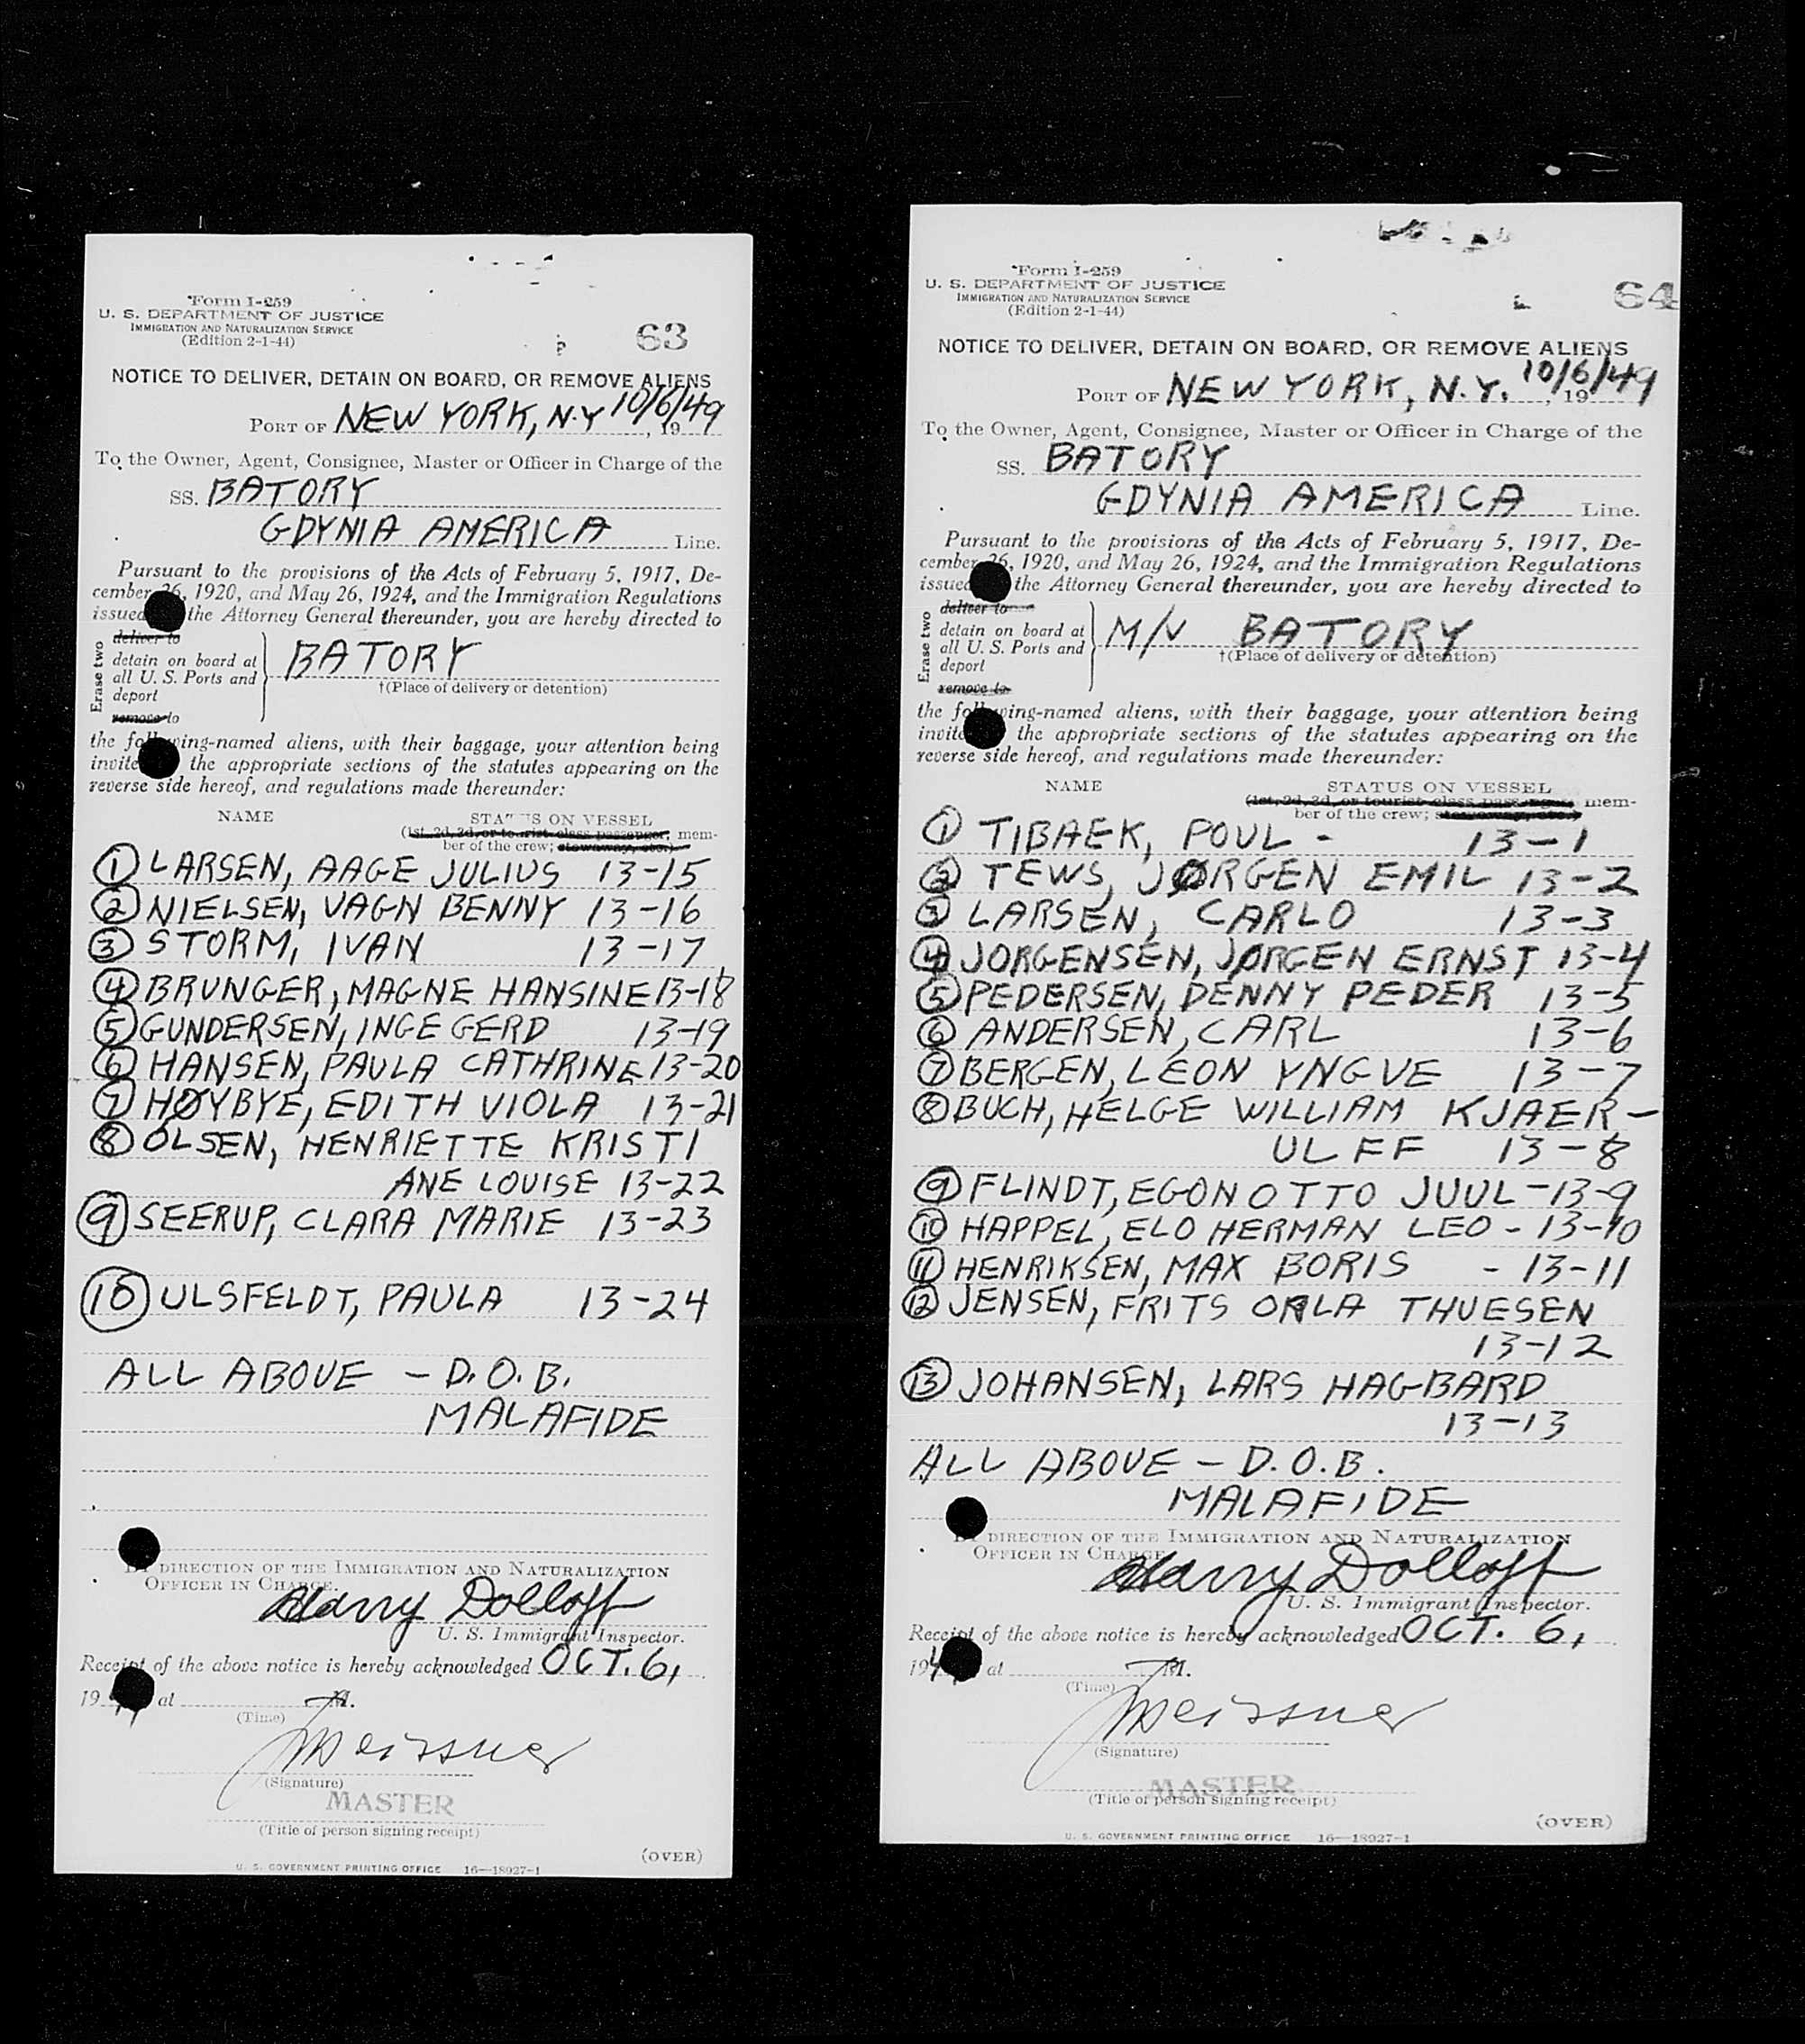 Form I-259
U. S. DEPARTMENT OF JUSTICE
IMMIGRATION AND NATURALIZATION SERVICE
(Edition 2-1-44)
63
NOTICE TO DELIVER, DETAIN ON BOARD, OR REMOVE ALIENS
PORT OF NEW YORK, N.Y 10/6/49, 19
To the Owner, Agent, Consignee, Master or Officer in Charge of the
SS. BATORY
GDYNIA AMERICA Line.
Pursuant to the provisions of the Acts of February 5, 1917, De-
cember 26, 1920, and May 26, 1924, and the Immigration Regulations
issued the Attorney General thereunder, you are hereby directed to
Erase two
deliver to
detain on board at
all U. S. Ports and
deport
remove to
BATORY
†(Place of delivery or detention)
the following-named aliens, with their baggage, your attention being
invited the appropriate sections of the statutes appearing on the
reverse side hereof, and regulations made thereunder:
NAME STATUS ON VESSEL
(1st, 2d, 3d, or tourist class passenger, mem-
ber of the crew; stowaway, etc.)
1 LARSEN, AAGE JULIUS 13-15
2 NIELSEN, VAGN BENNY 13-16
3 STORM, IVAN 13-17
4 BRUNGER, MAGNE HANSINE 13-18
5 GUNDERSEN, INGE GERD 13-19
6 HANSEN, PAULA CATHRINE 13-20
7 HØYBYE, EDITH VIOLA 13-21
8 OLSEN, HENRIETTE KRISTI
ANE LOUISE 13-22
9 SEERUP, CLARA MARIE 13-23
10 ULSFELDT, PAULA 13-24
ALL ABOVE - D.O.B.
MALAFIDE
BY DIRECTION OF THE IMMIGRATION AND NATURALIZATION
OFFICER IN CHARGE.
Harry Dolloff
U. S. Immigrant Inspector.
Receipt of the above notice is hereby acknowledged OCT. 6,
19 at M.
(Time)
Meissner
(Signature)
MASTER
(Title of person signing receipt)
(OVER)
U. S. GOVERNMENT PRINTING OFFICE 16—18927-1
Form I-259
U. S. DEPARTMENT OF JUSTICE
IMMIGRATION AND NATURALIZATION SERVICE
(Edition 2-1-44)
64
NOTICE TO DELIVER, DETAIN ON BOARD, OR REMOVE ALIENS
PORT OF NEW YORK, N.Y. 10/6/49, 19
To the Owner, Agent, Consignee, Master or Officer in Charge of the
SS. BATORY
GDYNIA AMERICA Line.
Pursuant to the provisions of the Acts of February 5, 1917, De-
cember 26, 1920, and May 26, 1924, and the Immigration Regulations
issued the Attorney General thereunder, you are hereby directed to
Erase two
deliver to
detain on board at
all U. S. Ports and
deport
remove to
M/V BATORY
†(Place of delivery or detention)
the following-named aliens, with their baggage, your attention being
invited the appropriate sections of the statutes appearing on the
reverse side hereof, and regulations made thereunder:
NAME STATUS ON VESSEL
(1st, 2d, 3d, or tourist class passenger, mem-
ber of the crew; stowaway, etc.)
1 TIBAEK, POUL - 13-1
2 TEWS, JØRGEN EMIL 13-2
3 LARSEN, CARLO 13-3
4 JORGENSEN, JØRGEN ERNST 13-4
5 PEDERSEN, DENNY PEDER 13-5
6 ANDERSEN, CARL 13-6
7 BERGEN, LEON YNGVE 13-7
8 BUCH, HELGE WILLIAM KJAER-
ULFF 13-8
9 FLINDT, EGON OTTO JUUL - 13-9
10 HAPPEL, ELO HERMAN LEO - 13-10
11 HENRIKSEN, MAX BORIS - 13-11
12 JENSEN, FRITS ORLA THUESEN
13-12
13 JOHANSEN, LARS HAGBARD
13-13
ALL ABOVE - D.O.B.
MALAFIDE
BY DIRECTION OF THE IMMIGRATION AND NATURALIZATION
OFFICER IN CHARGE
Harry Dolloff
U. S. Immigrant Inspector.
Receipt of the above notice is hereby acknowledged OCT. 6,
19 at M.
(Time)
Meissner
(Signature)
MASTER
(Title of person signing receipt)
(OVER)
U. S. GOVERNMENT PRINTING OFFICE 16—18927-1